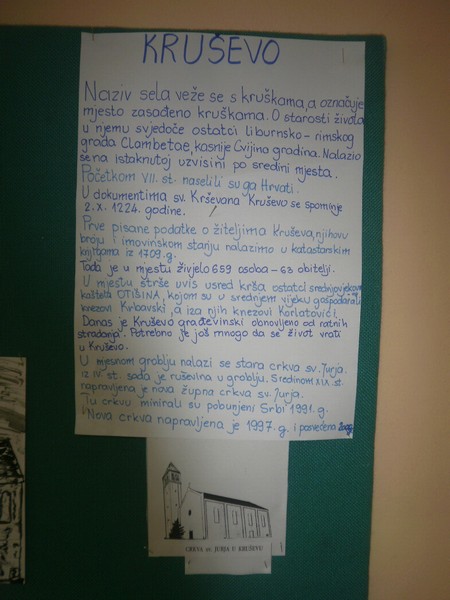 KRUŠEVO
Naziv sela veže se s kruškama, a označuje
mjesto zasađeno kruškama. O starosti života
u njemu svjedoče ostatci liburnsko-rimskog
grada Clambetae, kasnije Cvijina gradina. Nalazio
se na istaknutoj uzvisini po sredini mjesta.
Početkom VII. st. naselili su ga Hrvati.
U dokumentima sv. Krševana Kruševo se spominje
2. x. 1224. godine.
Prve pisane podatke o žiteljima Kruševa, njihovu
broju i imovinskom stanju nalazimo u katastarskim
knjigama iz 1709. g.
Tada je u mjestu živjelo 659 osoba - 63 obitelji.
U mjestu strše uvis usred krša ostatci srednjovjekovnog
kaštela OTIŠINA, kojom su u srednjem vijeku gospodarili
knezovi Krbavski, a iza njih knezovi Korlatovići.
Danas je Kruševo građevinski obnovljeno od ratnih
stradanja. Potrebno je još mnogo da se život vrati
u Kruševo.
U mjesnom groblju nalazi se stara crkva sv. Jurja
iz IV. st. sada je ruševina u groblju. Sredinom XIX. st.
napravljena je nova župna crkva sv. Jurja.
Tu crkvu minirali su pobunjeni Srbi 1991. g.
Nova crkva napravljena je 1997. g. i posvećena
CRKVA sv. JURJA U KRUŠEVU